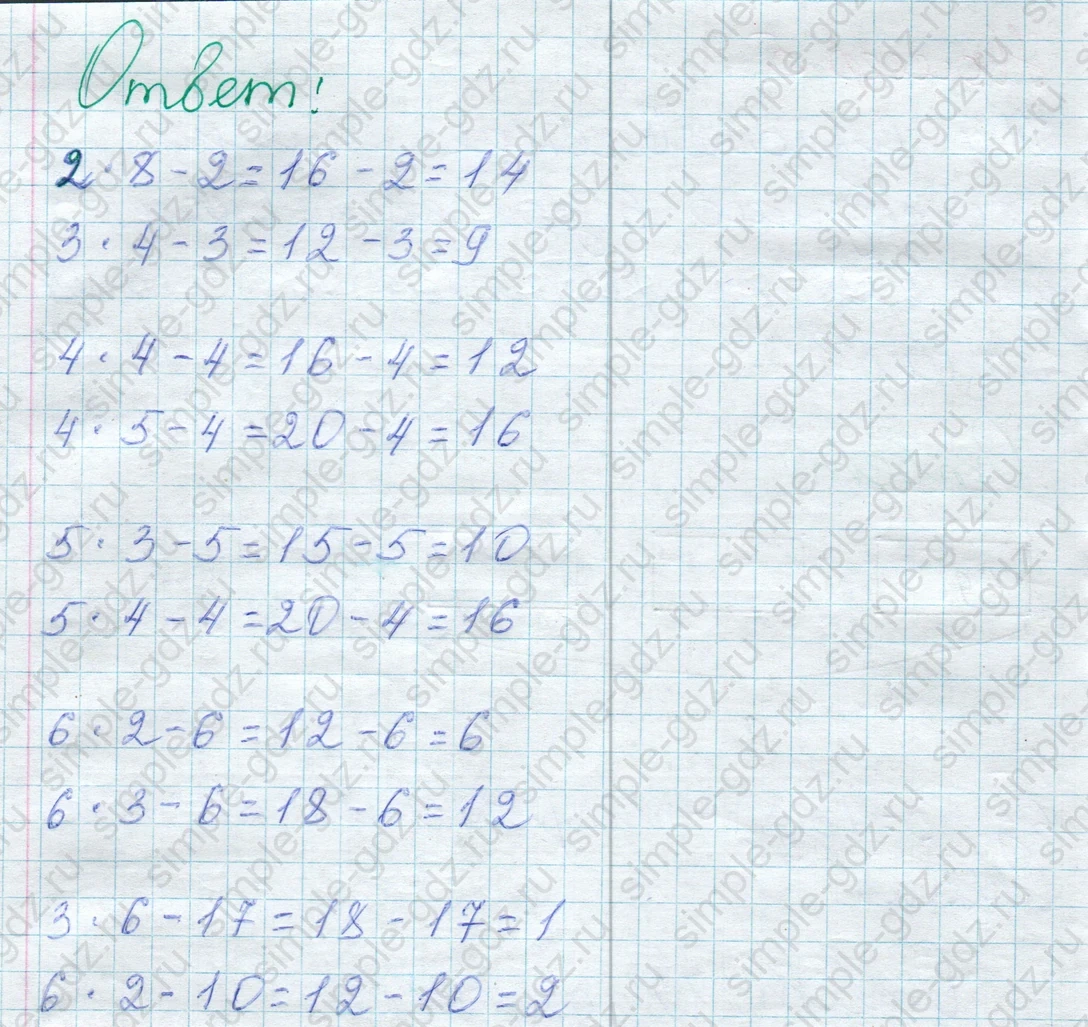 Ответ:
2 · 8 - 2 = 16 - 2 = 14
3 · 4 - 3 = 12 - 3 = 9
4 · 4 - 4 = 16 - 4 = 12
4 · 5 - 4 = 20 - 4 = 16
5 · 3 - 5 = 15 - 5 = 10
5 · 4 - 4 = 20 - 4 = 16
6 · 2 - 6 = 12 - 6 = 6
6 · 3 - 6 = 18 - 6 = 12
3 · 6 - 17 = 18 - 17 = 1
6 · 2 - 10 = 12 - 10 = 2
simple-gdz.ru